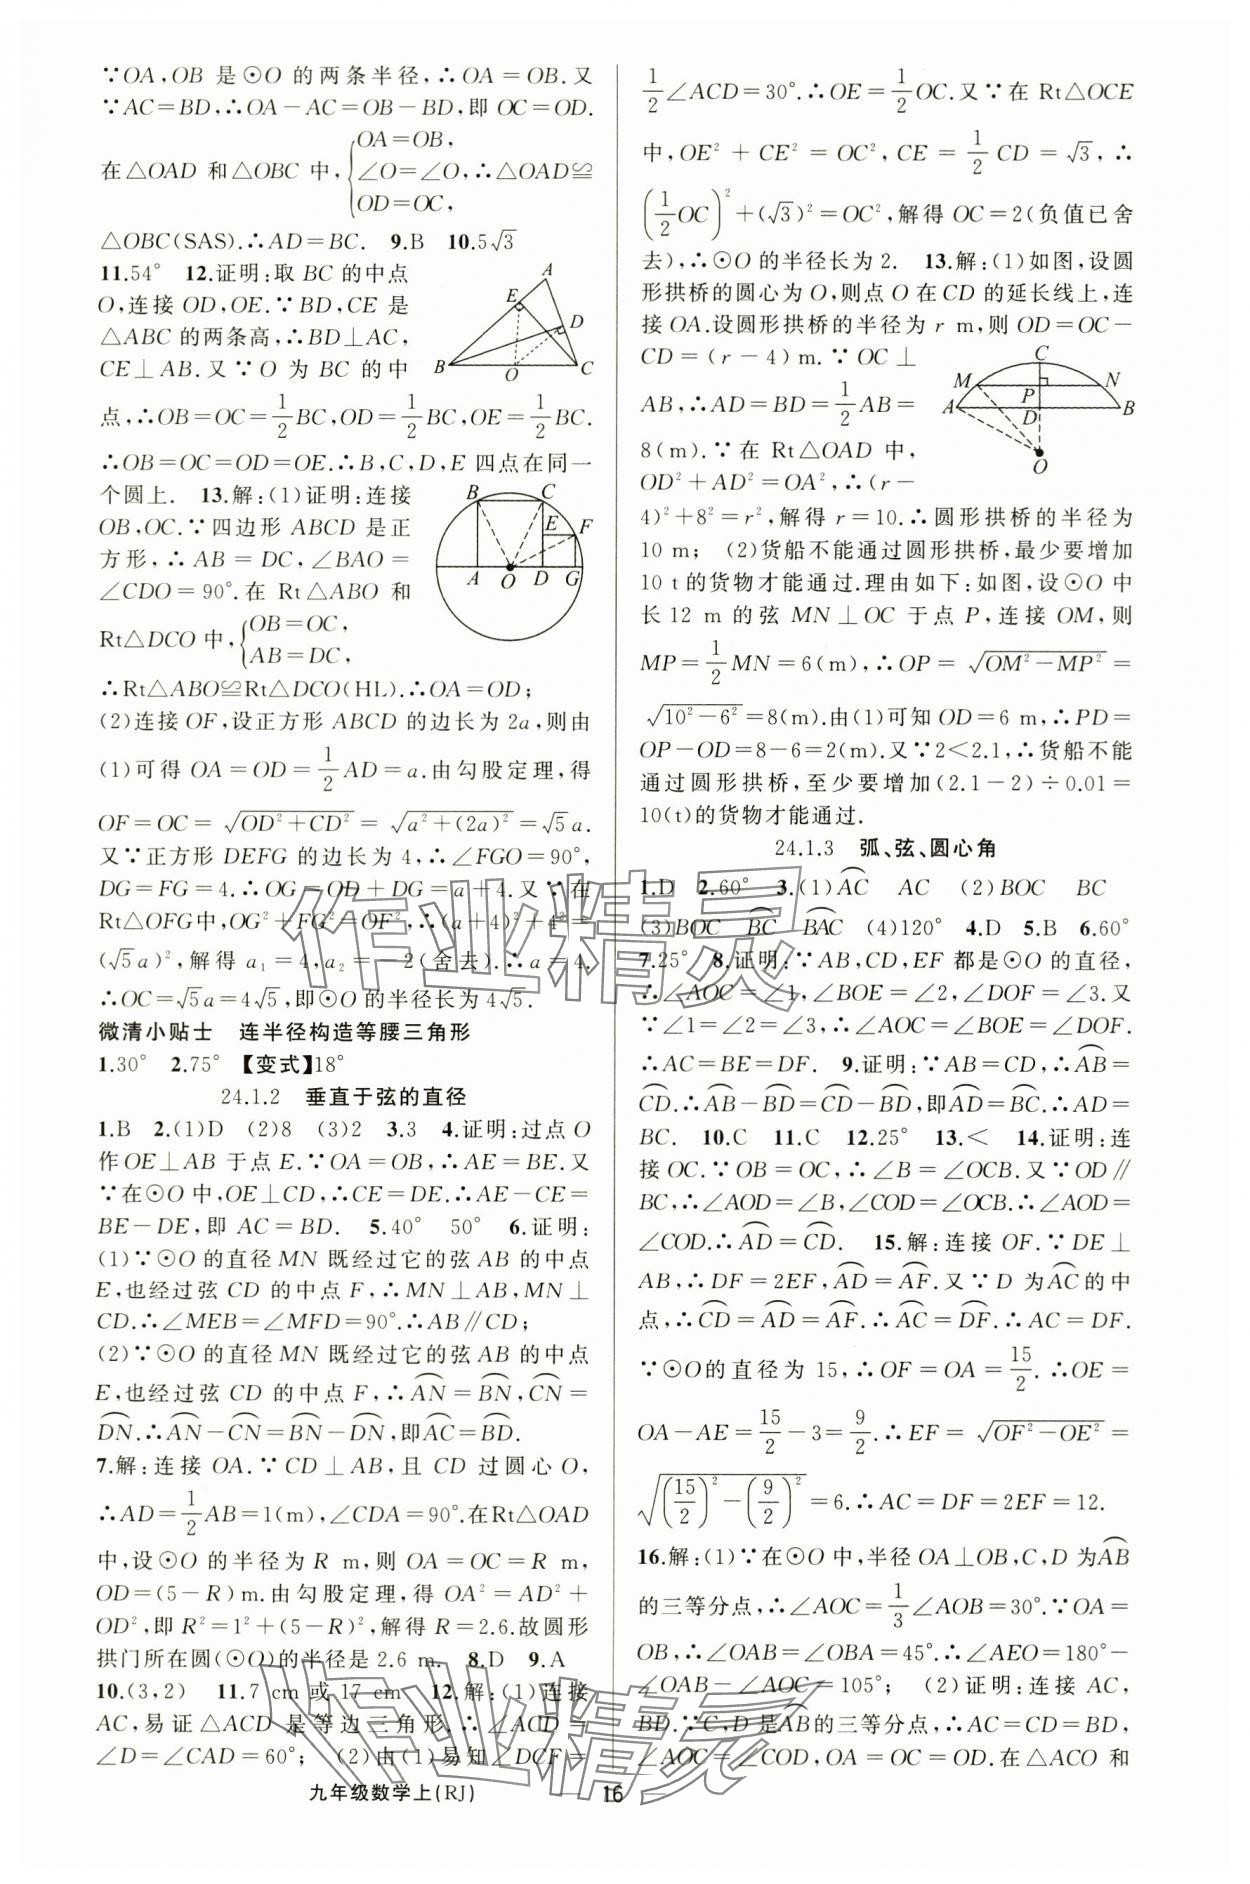 ∵OA,OB 是⊙O 的两条半径,∴OA=OB.又
∵AC=BD,∴OA-AC=OB-BD,即 OC=OD.
在△OAD 和△OBC 中,{OA=OB, ∠O=∠O, OD=OC, ∴△OAD≌
△OBC(SAS).∴AD=BC. 9.B 10.5√3
11.54° 12.证明:取 BC 的中点
O,连接 OD,OE.∵BD,CE 是
△ABC 的两条高,∴BD⊥AC,
CE⊥AB.又∵O 为 BC 的中
A
E
D
B
O
C
点,∴OB=OC=1/2BC,OD=1/2BC,OE=1/2BC.
∴OB=OC=OD=OE.∴B,C,D,E 四点在同一
个圆上. 13.解:(1)证明:连接
OB,OC.∵四边形 ABCD 是正
方形,∴AB=DC,∠BAO=
∠CDO=90°.在 Rt△ABO 和
Rt△DCO 中,{OB=OC, AB=DC,
B C
E F
A O D G
∴Rt△ABO≌Rt△DCO(HL).∴OA=OD;
(2)连接 OF,设正方形 ABCD 的边长为 2a,则由
(1)可得 OA=OD=1/2AD=a.由勾股定理,得
OF=OC=√(OD²+CD²)=√(a²+(2a)²)=√5a.
又∵正方形 DEFG 的边长为 4,∴∠FGO=90°,
DG=FG=4.∴OG=OD+DG=a+4.又∵在
Rt△OFG中,OG²+FG²=OF²,∴(a+4)²+4²=
(√5a)²,解得 a₁=4,a₂=-2(舍去).∴a=4.
∴OC=√5a=4√5,即⊙O 的半径长为 4√5.
微清小贴士 连半径构造等腰三角形
1.30° 2.75° 【变式】18°
24.1.2 垂直于弦的直径
1.B 2.(1)D (2)8 (3)2 3.3 4.证明:过点 O
作 OE⊥AB 于点 E.∵OA=OB,∴AE=BE.又
∵在⊙O 中,OE⊥CD,∴CE=DE.∴AE-CE=
BE-DE,即 AC=BD. 5.40° 50° 6.证明:
(1)∵⊙O 的直径 MN 既经过它的弦 AB 的中点
E,也经过弦 CD 的中点 F,∴MN⊥AB,MN⊥
CD.∴∠MEB=∠MFD=90°.∴AB∥CD;
(2)∵⊙O 的直径 MN 既经过它的弦 AB 的中点
E,也经过弦 CD 的中点 F,∴⌒AN=⌒BN,⌒CN=
⌒DN.∴⌒AN-⌒CN=⌒BN-⌒DN,即⌒AC=⌒BD.
7.解:连接 OA.∵CD⊥AB,且 CD 过圆心 O,
∴AD=1/2AB=1(m),∠CDA=90°.在Rt△OAD
中,设⊙O 的半径为 R m,则 OA=OC=R m,
OD=(5-R)m.由勾股定理,得 OA²=AD²+
OD²,即 R²=1²+(5-R)²,解得 R=2.6.故圆形
拱门所在圆(⊙O)的半径是 2.6 m. 8.D 9.A
10.(3,2) 11.7 cm或 17 cm 12.解:(1)连接
AC,易证△ACD 是等边三角形,∴∠ACD=
∠D=∠CAD=60°; (2)由(1)易知∠DCF=
1/2∠ACD=30°.∴OE=1/2OC.又∵在 Rt△OCE
中,OE²+CE²=OC²,CE=1/2CD=√3,∴
(1/2OC)²+(√3)²=OC²,解得 OC=2(负值已舍
去),∴⊙O 的半径长为 2. 13.解:(1)如图,设圆
形拱桥的圆心为 O,则点 O 在 CD 的延长线上,连
接 OA.设圆形拱桥的半径为 r m,则 OD=OC-
CD=(r-4)m.∵OC⊥
AB,∴AD=BD=1/2AB=
8(m).∵在 Rt△OAD 中,
OD²+AD²=OA²,∴(r-
C
M N
P
A D B
O
4)²+8²=r²,解得 r=10.∴圆形拱桥的半径为
10 m; (2)货船不能通过圆形拱桥,最少要增加
10 t的货物才能通过.理由如下:如图,设⊙O 中
长 12 m 的弦 MN⊥OC 于点 P,连接 OM,则
MP=1/2MN=6(m),∴OP=√(OM²-MP²)=
√(10²-6²)=8(m).由(1)可知 OD=6 m,∴PD=
OP-OD=8-6=2(m).又∵2<2.1,∴货船不能
通过圆形拱桥,至少要增加(2.1-2)÷0.01=
10(t)的货物才能通过.
24.1.3 弧、弦、圆心角
1.D 2.60° 3.(1)⌒AC AC (2)BOC BC
(3)BOC ⌒BC ⌒BAC (4)120° 4.D 5.B 6.60°
7.25° 8.证明:∵AB,CD,EF 都是⊙O 的直径,
∴∠AOC=∠1,∠BOE=∠2,∠DOF=∠3.又
∵∠1=∠2=∠3,∴∠AOC=∠BOE=∠DOF.
∴AC=BE=DF. 9.证明:∵AB=CD,∴⌒AB=
⌒CD.∴⌒AB-⌒BD=⌒CD-⌒BD,即⌒AD=⌒BC.∴AD=
BC. 10.C 11.C 12.25° 13.< 14.证明:连
接 OC.∵OB=OC,∴∠B=∠OCB.又∵OD∥
BC,∴∠AOD=∠B,∠COD=∠OCB.∴∠AOD=
∠COD.∴⌒AD=⌒CD. 15.解:连接 OF.∵DE⊥
AB,∴DF=2EF,⌒AD=⌒AF.又∵D 为⌒AC的中
点,∴⌒CD=⌒AD=⌒AF.∴⌒AC=⌒DF.∴AC=DF.
∵⊙O的直径为 15,∴OF=OA=15/2.∴OE=
OA-AE=15/2-3=9/2.∴EF=√(OF²-OE²)=
√((15/2)²-(9/2)²)=6.∴AC=DF=2EF=12.
16.解:(1)∵在⊙O 中,半径 OA⊥OB,C,D 为⌒AB
的三等分点,∴∠AOC=1/3∠AOB=30°.∵OA=
OB,∴∠OAB=∠OBA=45°.∴∠AEO=180°-
∠OAB-∠AOC=105°; (2)证明:连接 AC,
BD.∵C,D 是⌒AB的三等分点,∴AC=CD=BD,
∠AOC=∠COD,OA=OC=OD.在△ACO 和
九年级数学上(RJ)
16
作业精灵
作业精灵